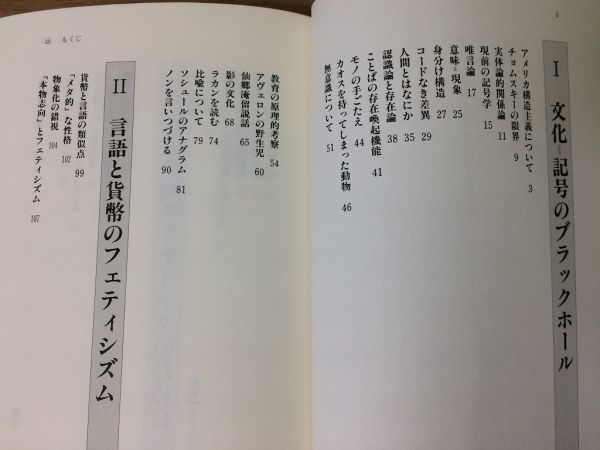 I 文化＝記号のブラックホール
アメリカ構造主義について 3
チョムスキーの限界 9
実体論的関係論 11
現前の記号学 15
唯言論 17
意味＝現象 25
身分け構造 27
コードなき差異 29
人間とはなにか 35
認識論と存在論 38
ことばの存在喚起機能 41
モノの手ごたえ 44
カオスを持ってしまった動物 46
無意識について 51
もくじ
教育の原理的考察 54
アヴェロンの野生児 60
仙郷淹留説話 65
影の文化 68
ラカンを読む 74
比喩について 79
ソシュールのアナグラム 81
ノンを言いつづける 90
II 言語と貨幣のフェティシズム
貨幣と言語の類似点 99
「メタ的」な性格 102
物象化の錯視 104
「本物志向」とフェティシズム 107